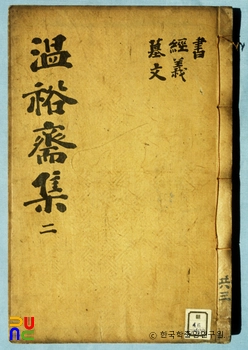 書
經義
墓文
温裕齋集 二
共三
© 한국학중앙연구원